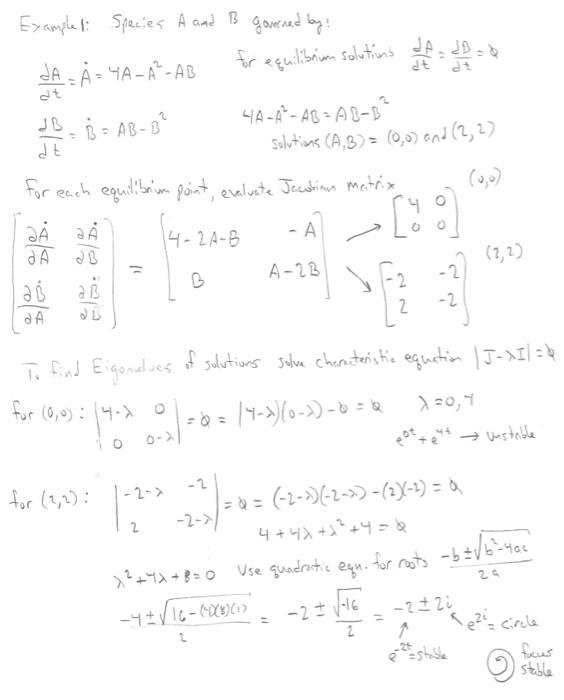 Example 1: Species A and B governed by:
dA/dt = Ȧ = 4A - A² - AB
for equilibrium solutions dA/dt = dB/dt = 0
dB/dt = Ḃ = AB - B²
4A - A² - AB = AB - B²
solutions (A,B) = (0,0) and (2,2)
For each equilibrium point, evaluate Jacobian matrix
[∂Ȧ/∂A ∂Ȧ/∂B; ∂Ḃ/∂A ∂Ḃ/∂B] = [4-2A-B -A; B A-2B]
→ [4 0; 0 0] (0,0)
↘ [-2 -2; 2 -2] (2,2)
To find Eigenvalves of solutions solve characteristic equation |J-λI| = 0
for (0,0): |4-λ 0; 0 0-λ| = 0 = (4-λ)(0-λ) - 0 = 0 λ = 0, 4
e^0t + e^4t → unstable
for (2,2): |-2-λ -2; 2 -2-λ| = 0 = (-2-λ)(-2-λ) - (2)(-2) = 0
4 + 4λ + λ² + 4 = 0
λ² + 4λ + 8 = 0 Use quadratic eqn. for roots (-b ± √(b²-4ac))/2a
(-4 ± √(16-(4)(8)(1)))/2 = -2 ± √-16/2 = -2 ± 2i
e^2i = circle
e^-2t = stable
focus
stable